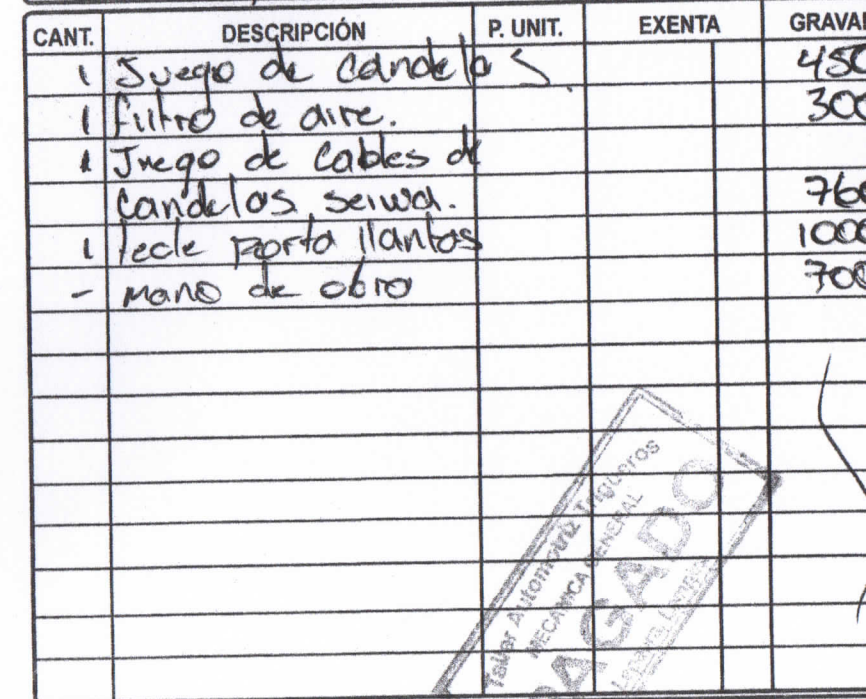 CANT. DESCRIPCIÓN P. UNIT. EXENTA GRAVA
1 Juego de candelas 450
1 filtro de aire. 300
1 Juego de cables de
candelas seiwa. 760
1 porta llantas 1000
- mano de obra 700
Taller Automotriz Trigueros
MECANICA GENERAL
PAGADO